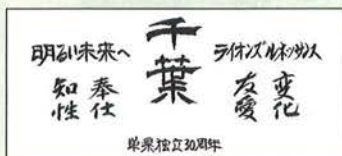 明るい未来へ
知性 奉仕
千葉
ライオンズルネッサンス
友愛 変化
単県独立30周年